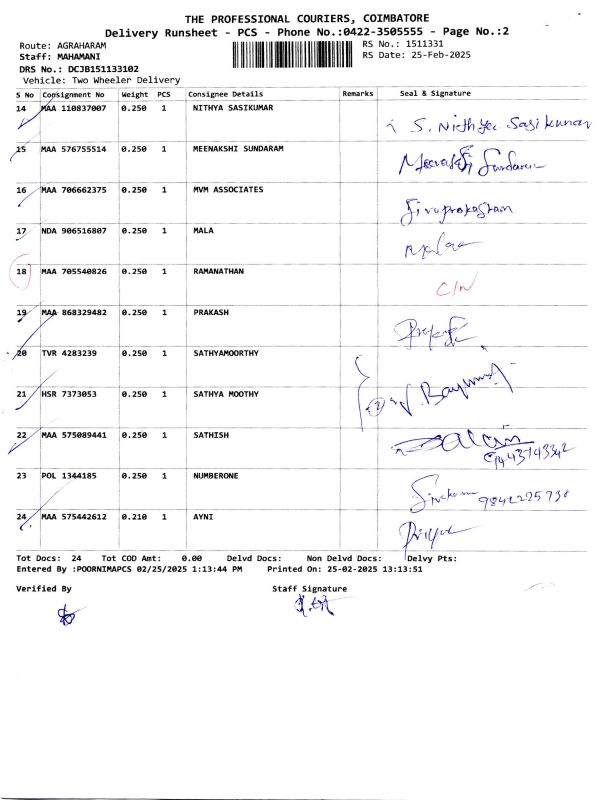 THE PROFESSIONAL COURIERS, COIMBATORE
Delivery Runsheet - PCS - Phone No.:0422-3505555 - Page No.:2
Route: AGRAHARAM RS No.: 1511331
Staff: MAHAMANI RS Date: 25-Feb-2025
DRS No.: DCJB151133102
Vehicle: Two Wheeler Delivery
S No Consignment No Weight PCS Consignee Details Remarks Seal & Signature
14 MAA 110837007 0.250 1 NITHYA SASIKUMAR
S. Nithya Sasikumar
15 MAA 576755514 0.250 1 MEENAKSHI SUNDARAM
Meenakshi Sundaram
16 MAA 706662375 0.250 1 MVM ASSOCIATES
17 NDA 906516807 0.250 1 MALA
Mala
18 MAA 705540826 0.250 1 RAMANATHAN
C/N
19 MAA 868329482 0.250 1 PRAKASH
20 TVR 4283239 0.250 1 SATHYAMOORTHY
21 HSR 7373053 0.250 1 SATHYA MOOTHY
2
22 MAA 575089441 0.250 1 SATHISH
23 POL 1344185 0.250 1 NUMBERONE
24 MAA 575442612 0.210 1 AYNI
Tot Docs: 24 Tot COD Amt: 0.00 Delvd Docs: Non Delvd Docs: Delvy Pts:
Entered By :POORNIMAPCS 02/25/2025 1:13:44 PM Printed On: 25-02-2025 13:13:51
Verified By Staff Signature